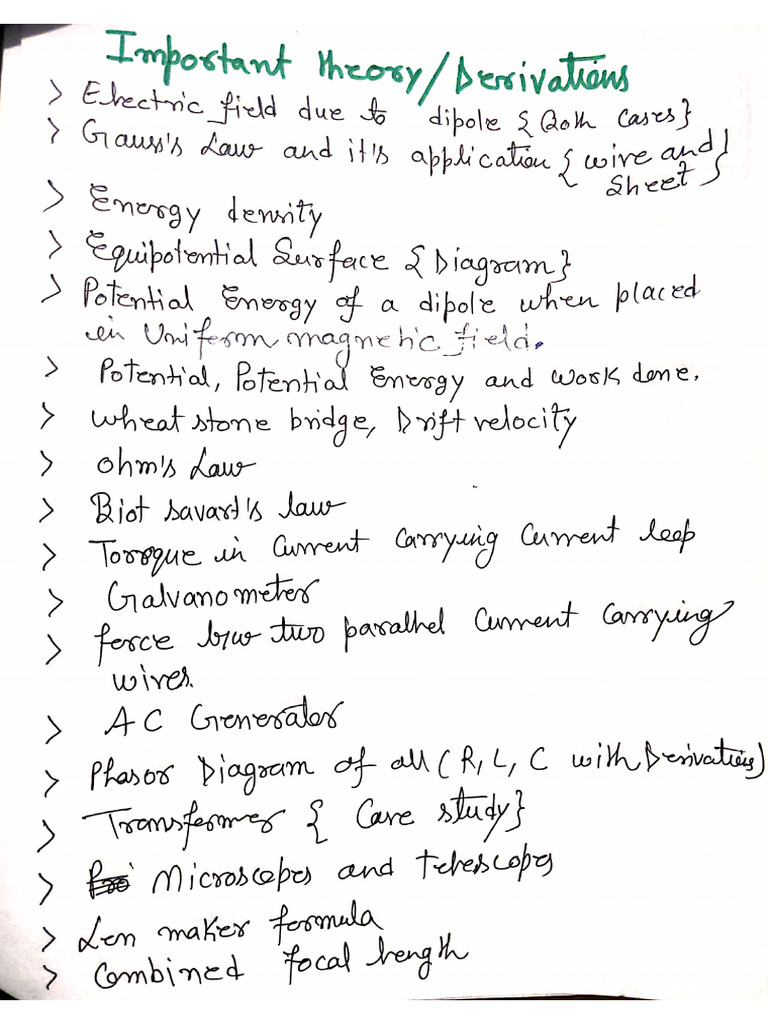 Important theory/Derrivations
> Electric field due to dipole {Both Cases}
> Gauss's Law and it's application {wire and
Sheet}
> Energy density
> Equipotential Surface {Diagram}
> Potential Energy of a dipole when placed
in Uniform magnetic field.
> Potential, Potential Energy and work done.
> wheat stone bridge, Drift velocity
> ohm's Law
> Biot savart's law
> Torque in Current Carrying Current loop
> Galvanometer
> force b/w two parallel Current Carrying
wires.
> AC Generator
> Phasor Diagram of all (R, L, C with Derivations)
> Transformer { Case study}
> Microscopes and telescopes
> Len maker formula
> Combined focal length